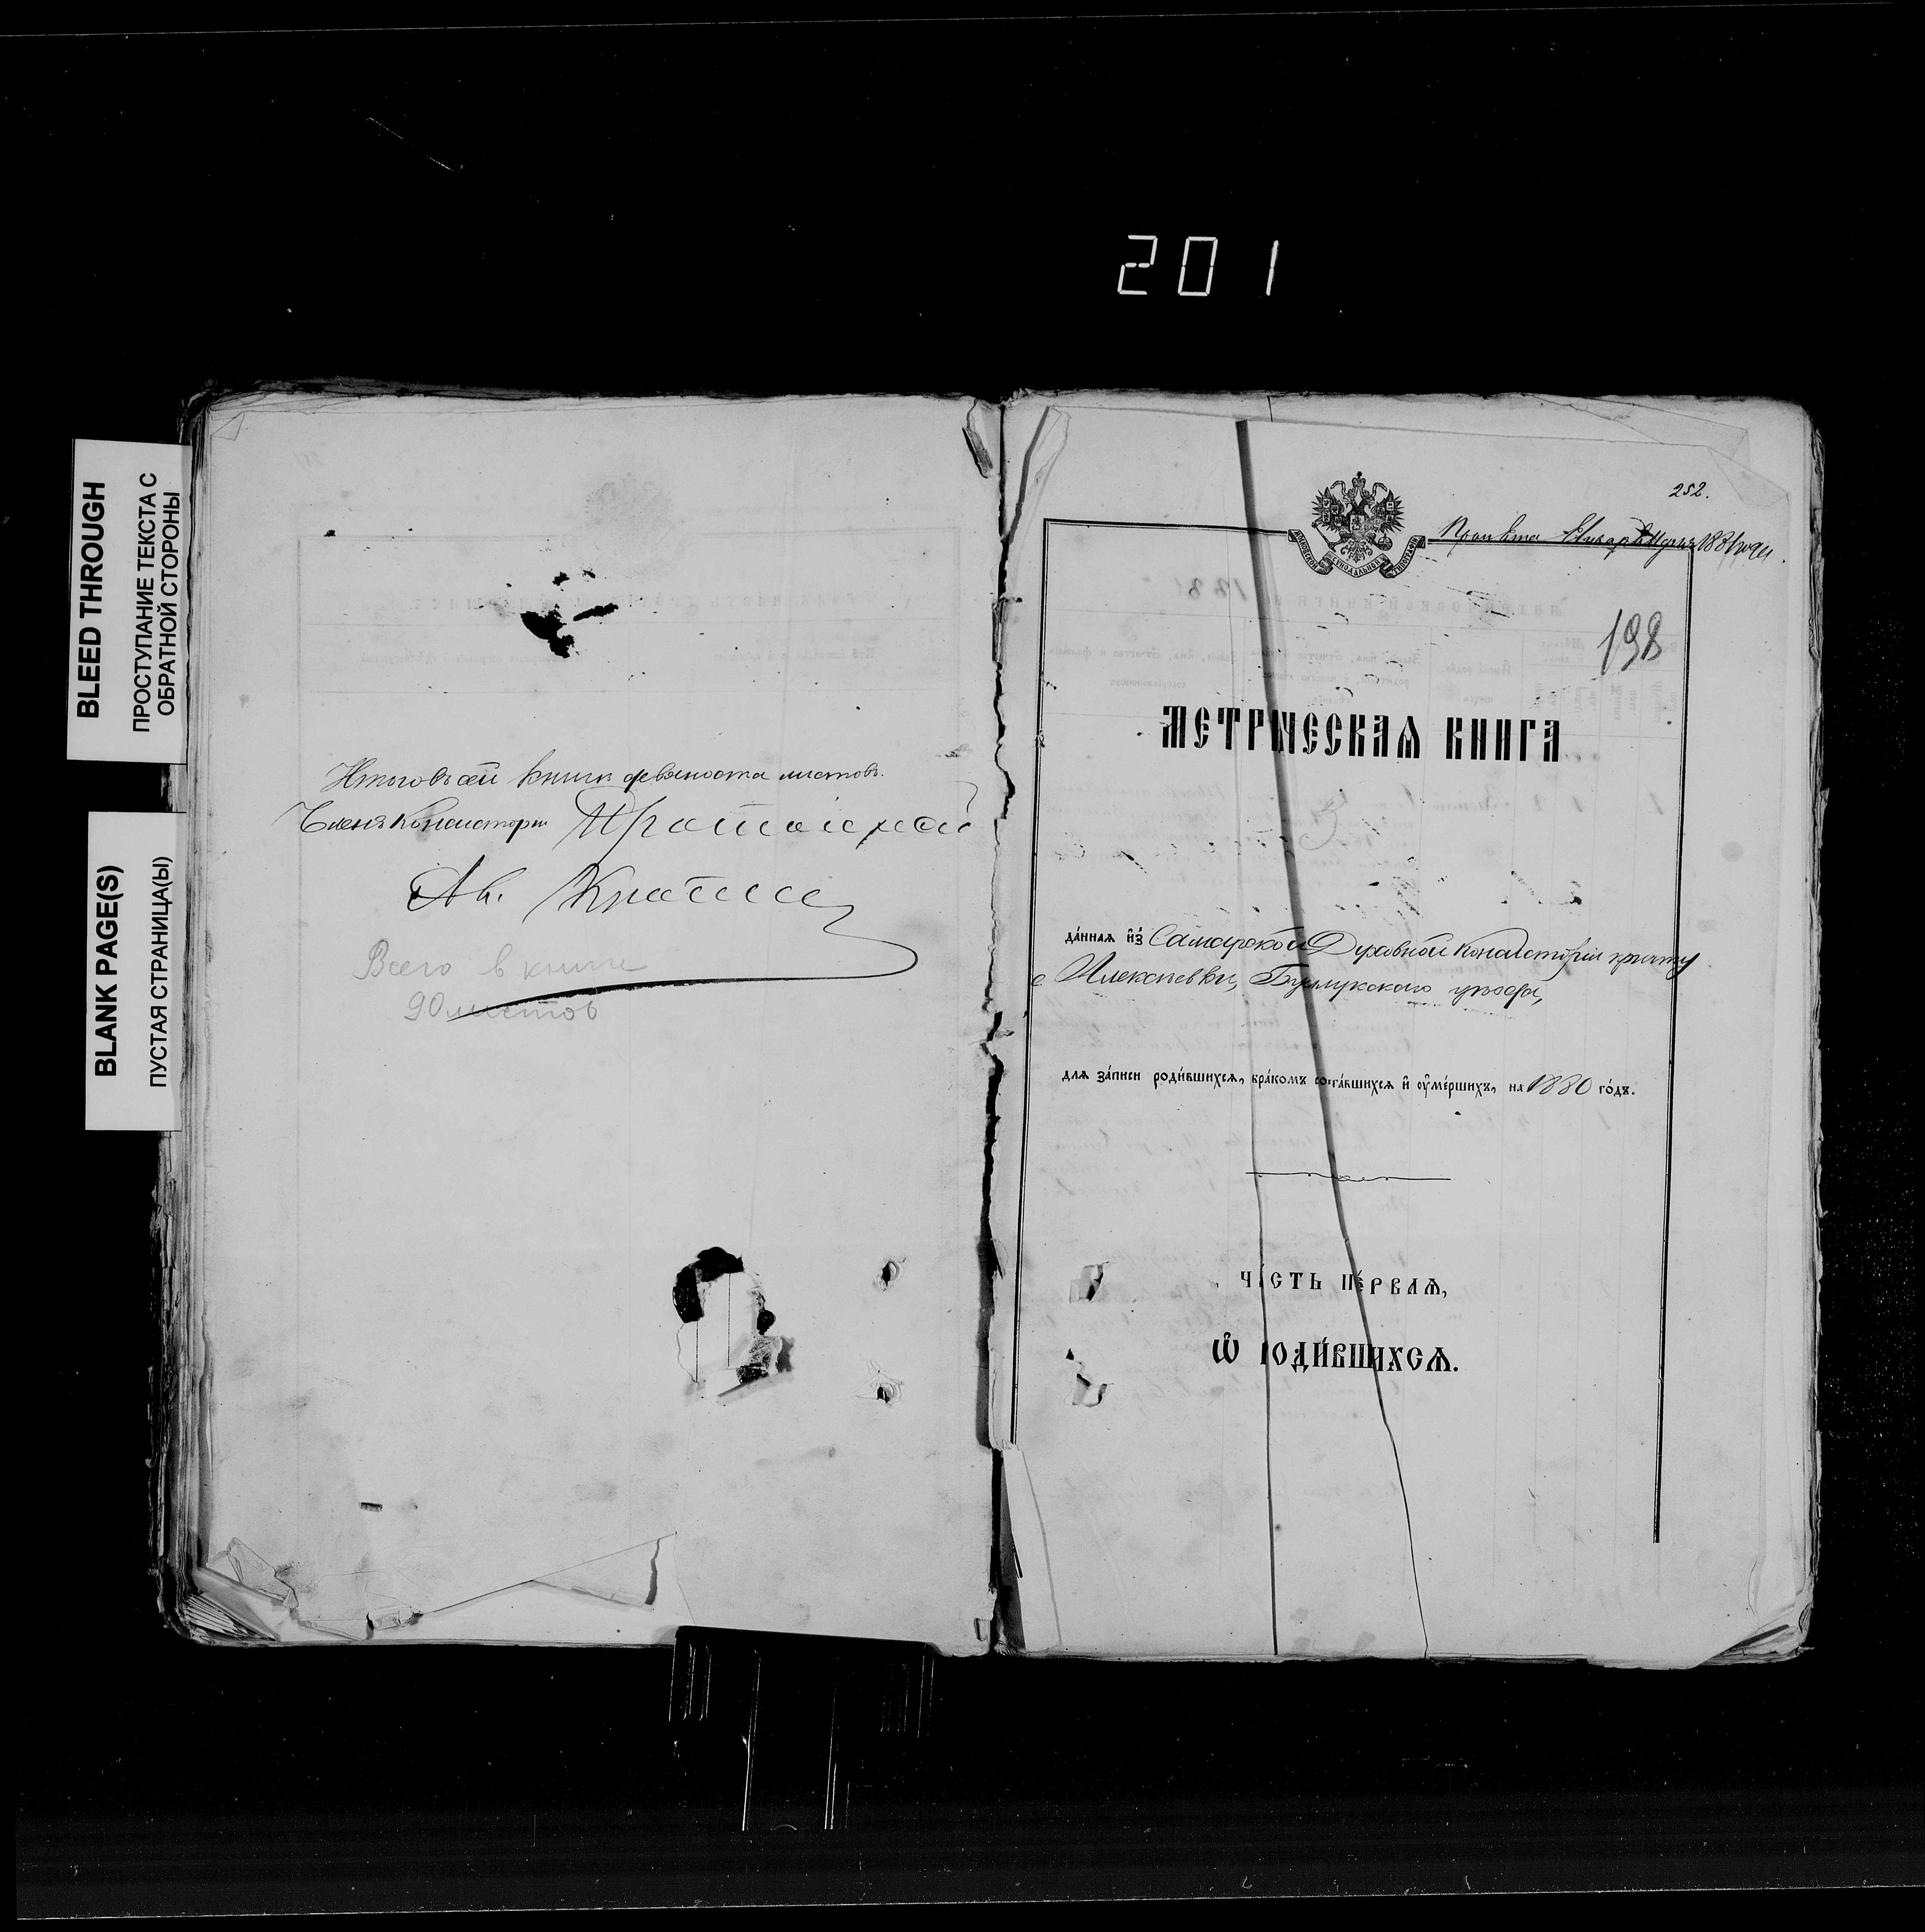 201
BLEED THROUGH
ПРОСТУПАНИЕ ТЕКСТА С
ОБРАТНОЙ СТОРОНЫ
BLANK PAGE(S)
ПУСТАЯ СТРАНИЦА(Ы)
Итого въ сей книги девяносто листовъ.
Членъ Консисторіи Протоіерей
Ав.
Всего в книге
90 листов
252.
1881 года
198
МЕТРИЧЕСКАѦ КНИГА
да́ннаѧ и҆з̾ Самарской Духовной Консисторіи причту
с Алексѣевки, Бузулукскаго уѣзда,
длѧ за́писи роди́вшихсѧ, бра́комъ сочета́вшихсѧ и҆ ᲂу҆ме́ршихъ, на 1880 го́дъ.
ЧА́СТЬ ПЕ́РВАѦ,
Ѽ РОДИ́ВШИХСѦ.